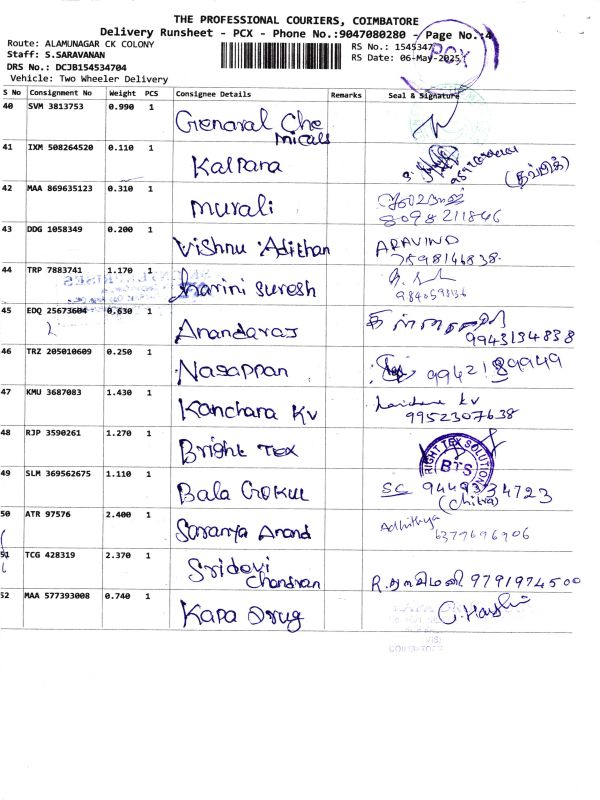 THE PROFESSIONAL COURIERS, COIMBATORE
Delivery Runsheet - PCX - Phone No.:9047080280 - Page No.:4
Route: ALAMUNAGAR CK COLONY
RS No.: 1545347
Staff: S.SARAVANAN
RS Date: 06-May-2025
PCX
DRS No.: DCJB154534704
Vehicle: Two Wheeler Delivery
S No Consignment No Weight PCS Consignee Details Remarks Seal & Signature
40 SVM 3813753 0.990 1 Genaral Che
micals
41 IXM 508264520 0.110 1 Kalpana
42 MAA 869635123 0.310 1 murali
8098211846
43 DDG 1058349 0.200 1 Vishnu Adithan ARAVIND
7598146838
44 TRP 7883741 1.170 1 harini suresh
45 EDQ 25673604 0.630 1 Anandaraj
9943134838
46 TRZ 205010609 0.250 1 Nagappan 9942189949
47 KMU 3687083 1.430 1 Kanchana Kv
9952307638
48 RJP 3590261 1.270 1 Bright Tex
RIGHT TEX SOLUTION
BTS
49 SLM 369562675 1.110 1 Bala Gokul SC 9449334723
(Chitra)
50 ATR 97576 2.400 1 Saranya Anand Adhithya
6377696906
51 TCG 428319 2.370 1 Sridevi
Chandran R. 9791974500
52 MAA 577393008 0.740 1 Kapa Drug
COIMBATORE